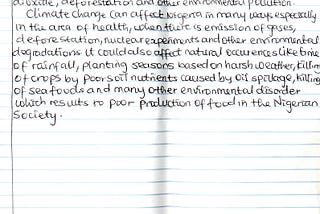 dioxide, deforestation and other environmental pollution.
Climate change can affect Nigeria in many ways especially
in the area of health, when there is emission of gases,
deforestation, nuclear experiments and other environmental
degradations it could also affect natural occurences like time
of rainfall, planting seasons based on harsh weather, killing
of crops by poor soil nutrients caused by oil spillage, killing
of sea foods and many other environmental disorder
which results to poor production of food in the Nigerian
Society.